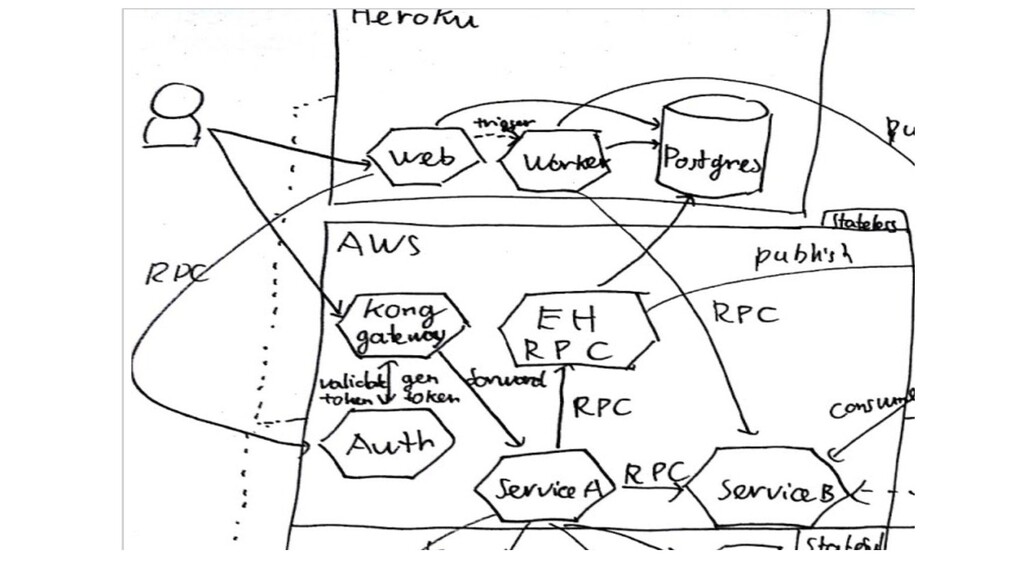 Heroku
trigger
web
Worker
Postgres
Stateless
AWS
publish
RPC
RPC
Kong
gateway
EH
RPC
validate
token
gen
token
forward
RPC
consume
Auth
Service A
RPC
Service B
Stateful